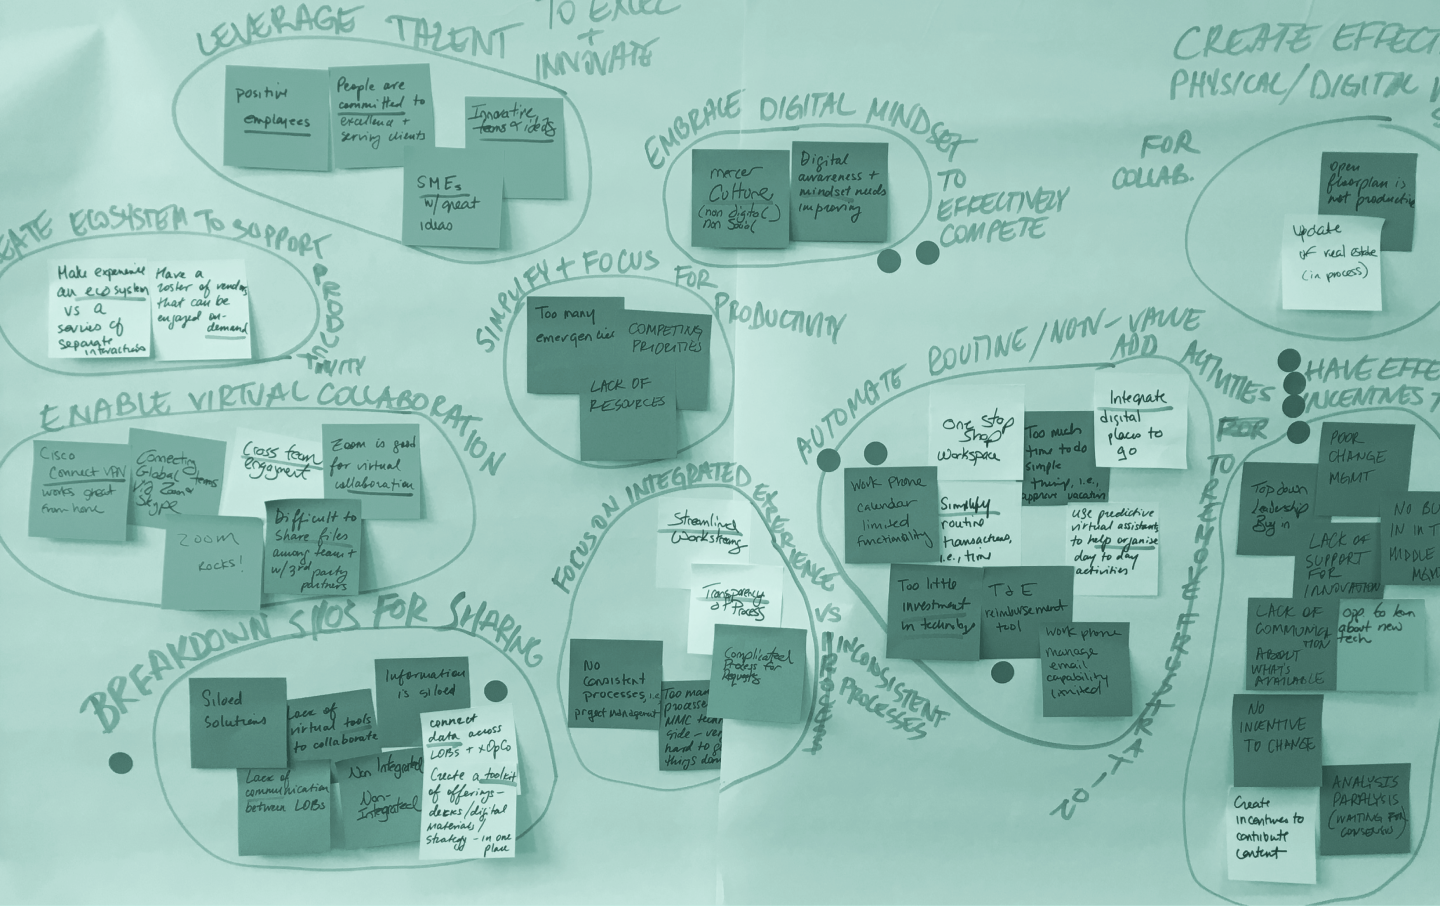 LEVERAGE TALENT
TO EXCEL
+
INNOVATE
positive
employees
People are
committed to
excellence +
serving clients
Innovative
teams & ideas
SMEs
w/ great
ideas
EMBRACE DIGITAL MINDSET
TO
EFFECTIVELY
COMPETE
mercer
Culture
(non digital)
non social
Digital
awareness +
mindset needs
improving
CREATE EFFECT
PHYSICAL/DIGITAL
FOR
COLLAB.
Open
floorplan is
not productive
update
of real estate
(in process)
EATE ECOSYSTEM TO SUPPORT
PRODUCTIVITY
Make experience
an ecosystem
vs a
series of
separate
interactions
Have a
roster of vendors
that can be
engaged on-
demand
SIMPLIFY + FOCUS
FOR
PRODUCTIVITY
Too many
emergencies
COMPETING
PRIORITIES
LACK OF
RESOURCES
ENABLE VIRTUAL COLLABORATION
Cisco
Connect VPN
works great
from home
Connecting
Global teams
via Zoom
Skype
Cross team
engagment
Zoom is good
for virtual
collaboration
ZOOM
ROCKS!
Difficult to
Share files
among team +
w/ 3rd party
partners
AUTOMATE ROUTINE/NON-VALUE
ADD ACTIVITIES
FOR
One Stop
Shop
Workspace
Too much
time to do
simple
things, i.e.,
approve vacation
Integrate
digital
places to
go
work phone
calendar
limited
functionality
Simplify
routine
transactions,
i.e., time
use predictive
virtual assistants
to help organise
day to day
activities
Too little
investment
in technology
T & E
reimbursement
tool
work phone
manage
email
capability
limited
HAVE EFFE
INCENTIVES T
POOR
CHANGE
MGMT
Top down
leadership
Buy in
LACK OF
SUPPORT
FOR
INNOVATION
NO BU
IN IN T
MIDDLE
MGM
LACK OF
COMMUNICA
TION
ABOUT
WHAT'S
AVAILABLE
opp. to learn
about new
tech
NO
INCENTIVE
TO CHANGE
ANALYSIS
PARALYSIS
(WAITING FOR
CONSENSUS)
Create
incentives to
contribute
content
FOCUS ON INTEGRATED EXPERIENCE
VS
INCONSISTENT
PROCESSES
Streamlined
Workstreams
Transparency
of Process
No
Consistent
processes, i.e.
project management
Complicated
Process for
Requests
Too man
processe
MMC tech
side - ver
hard to g
things don
BREAKDOWN SILOS FOR SHARING
Siloed
Solutions
Lack of
virtual tools
to collaborate
Information
is siloed
connect
data across
LOBs + xOpCo
Lack of
communication
between LOBs
Non Integrated
Non-
Integrated
Create a toolkit
of offerings-
decks/digital
materials/
strategy - in one
place